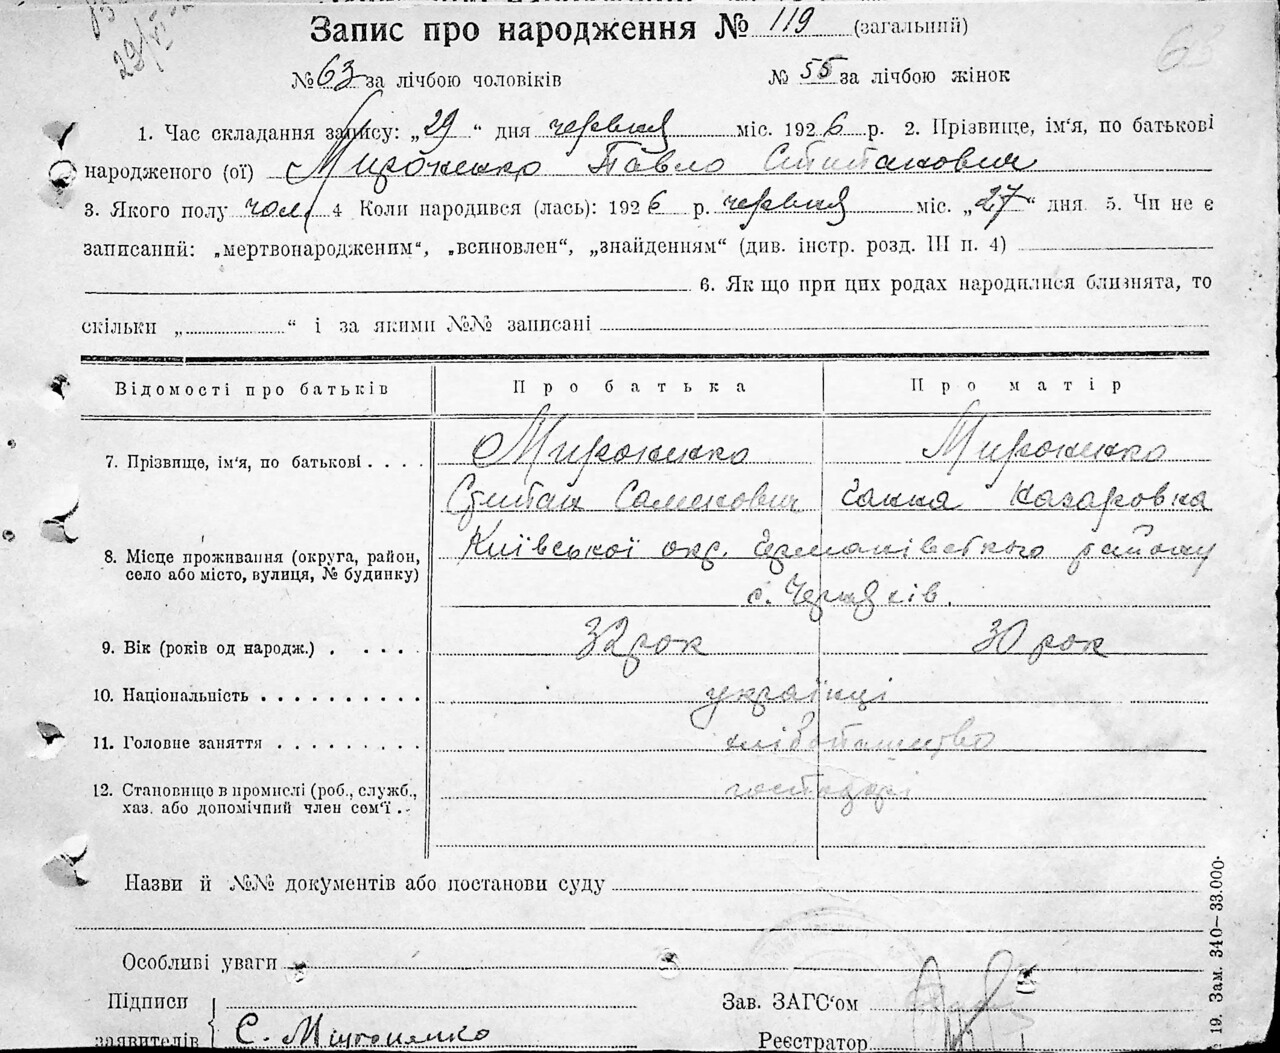 Запис про народження № 119 (загальний)
63
29/VI
№ 63 за лічбою чоловіків № 55 за лічбою жінок
1. Час складання запису: „29“ дня червня міс. 1926 р. 2. Прізвище, ім'я, по батькові
народженого (ої) Мироненко Павло Степанович
3. Якого полу чол. 4 Коли народився (лась): 1926 р. червня міс. „27“ дня. 5. Чи не є
записаний: „мертвонародженим“, „всиновлен“, „знайденням“ (див. інстр. розд. III п. 4)
6. Як що при цих родах народилися близнята, то
скільки „ “ і за якими №№ записані
Відомості про батьків Про батька Про матір
7. Прізвище, ім'я, по батькові . . . . Мироненко Мироненко
Степан Семенович Ганна Назаровна
8. Місце проживання (округа, район, Київської окр. Германівського району
село або місто, вулиця, № будинку)
с. Черняхів.
9. Вік (років од народж.) . . . . . 32 рок 30 рок
10. Національність . . . . . . . . . . українці
11. Головне заняття . . . . . . . . . хліборобство
12. Становищо в промислі (роб., служб., господарі
хаз. або допомічний член сем'ї . .
Назви й №№ документів або постанови суду
Особливі уваги
Підписи Зав. ЗАГС'ом
заявителів С. Мироненко Реєстратор
19. Зам. 340—33.000.